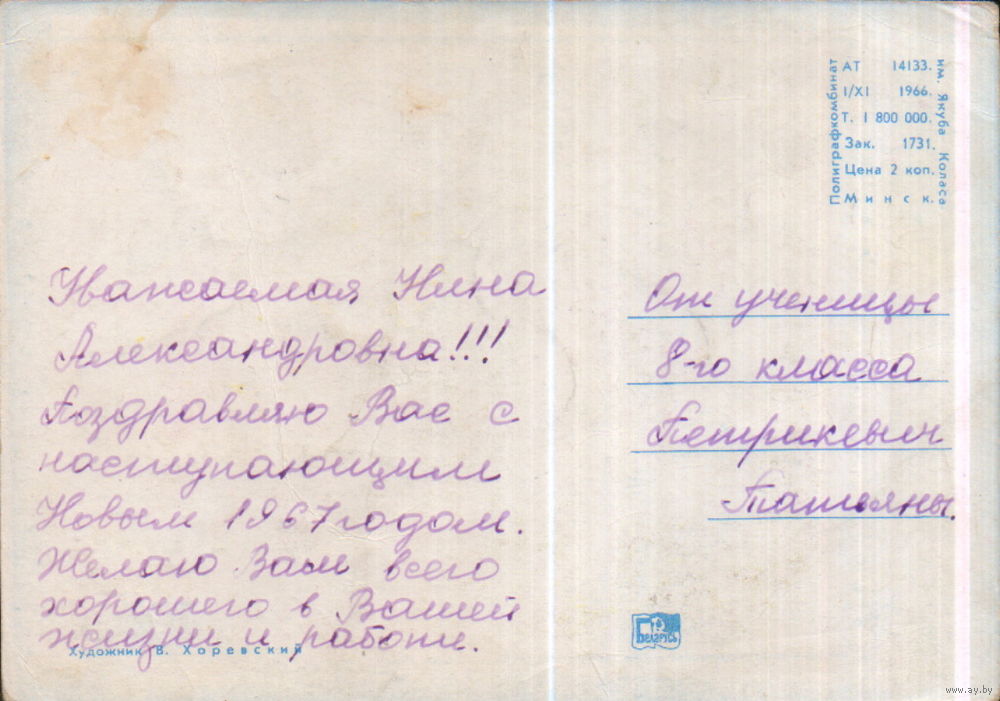 Уважаемая Нина
Александровна!!!
Поздравляю Вас с
наступающим
Новым 1967 годом.
Желаю Вам всего
хорошего в Вашей
жизни и работе.
Художник В. Хоревский
Полиграфкомбинат
АТ 14133.
I/XI 1966.
Т. 1 800 000.
Зак. 1731.
Цена 2 коп.
Минск.
им. Якуба Коласа
От ученицы
8-го класса
Петрикевич
Татьяны.
БЕЛАРУСЬ
www.ay.by